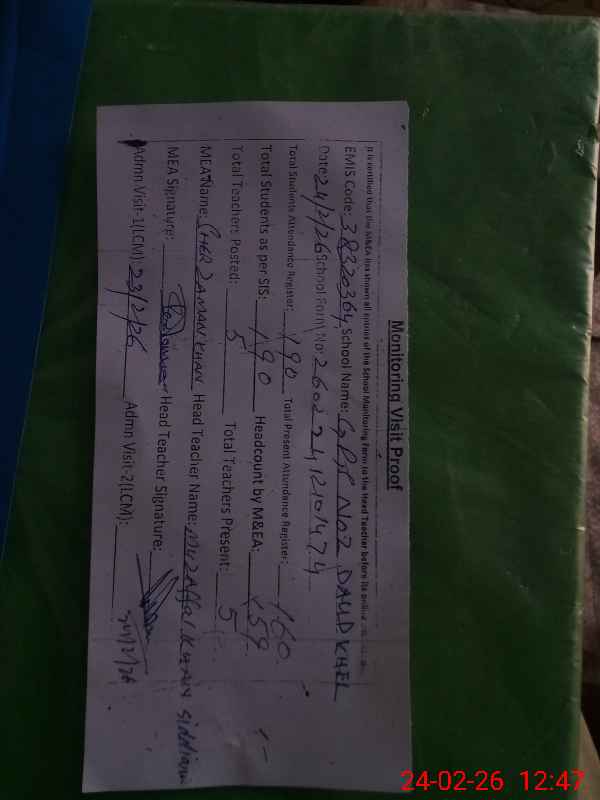 Monitoring Visit Proof
It is certified that the M&EA has shown all entries of the School Monitoring Form to the Head Teacher before its
EMIS Code: 38320364 School Name: GPS No2 DAUD KHEL
Date: 24/2/26 School Form No: 26022412101474
Total Students Attendance Register: 190 Total Present Attendance Register: 160
Total Students as per SIS: 190 Headcount by M&EA: 159
Total Teachers Posted: 5 Total Teachers Present: 5
MEA Name: SHER ZAMAN KHAN Head Teacher Name: Muzaffar KHAN
MEA Signature: Head Teacher Signature:
Admn.Visit-1(LCM): 23/2/26 Admn Visit-2(LCM):
24/2/26
24-02-26 12:47